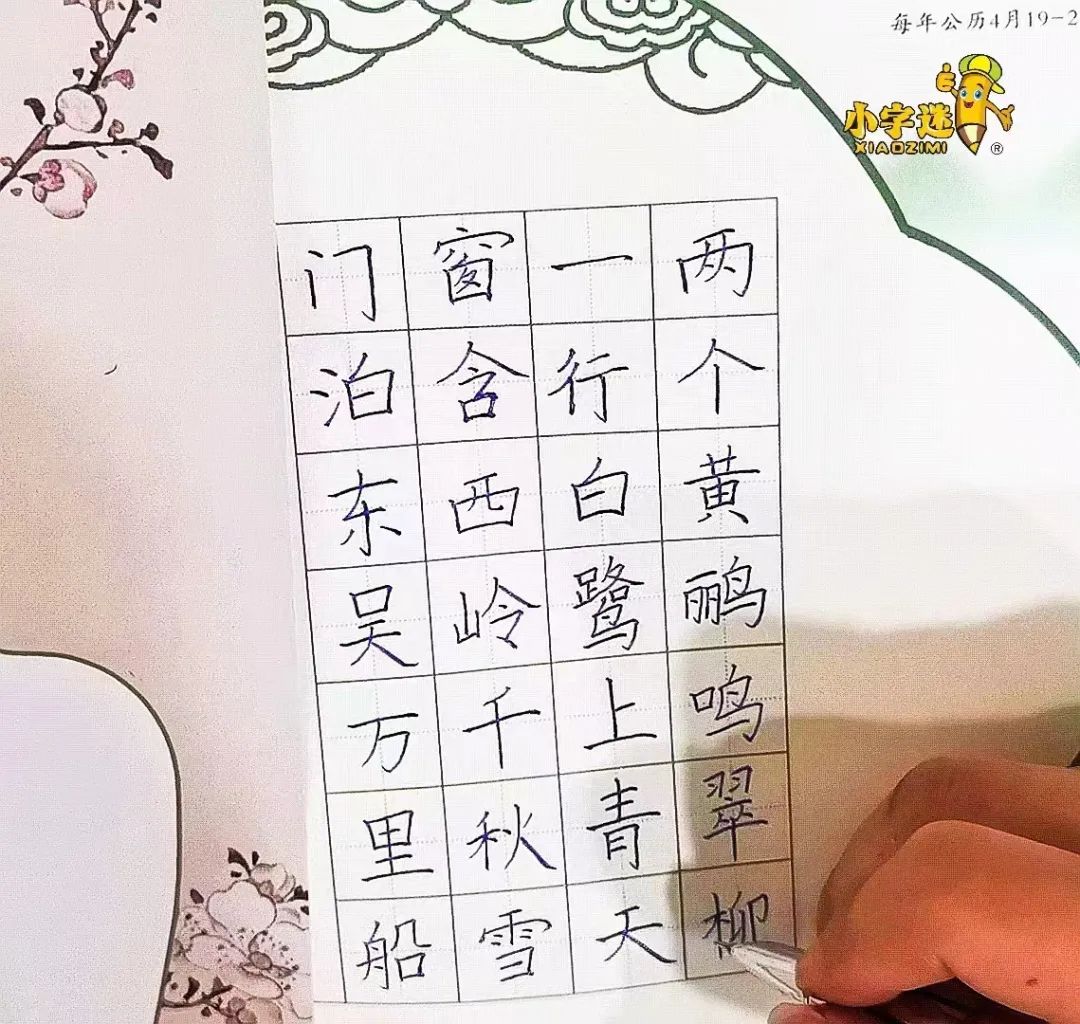 每年公历4月19-2
小字迷
XIAOZIMI
®
两个黄鹂鸣翠柳
一行白鹭上青天
窗含西岭千秋雪
门泊东吴万里船